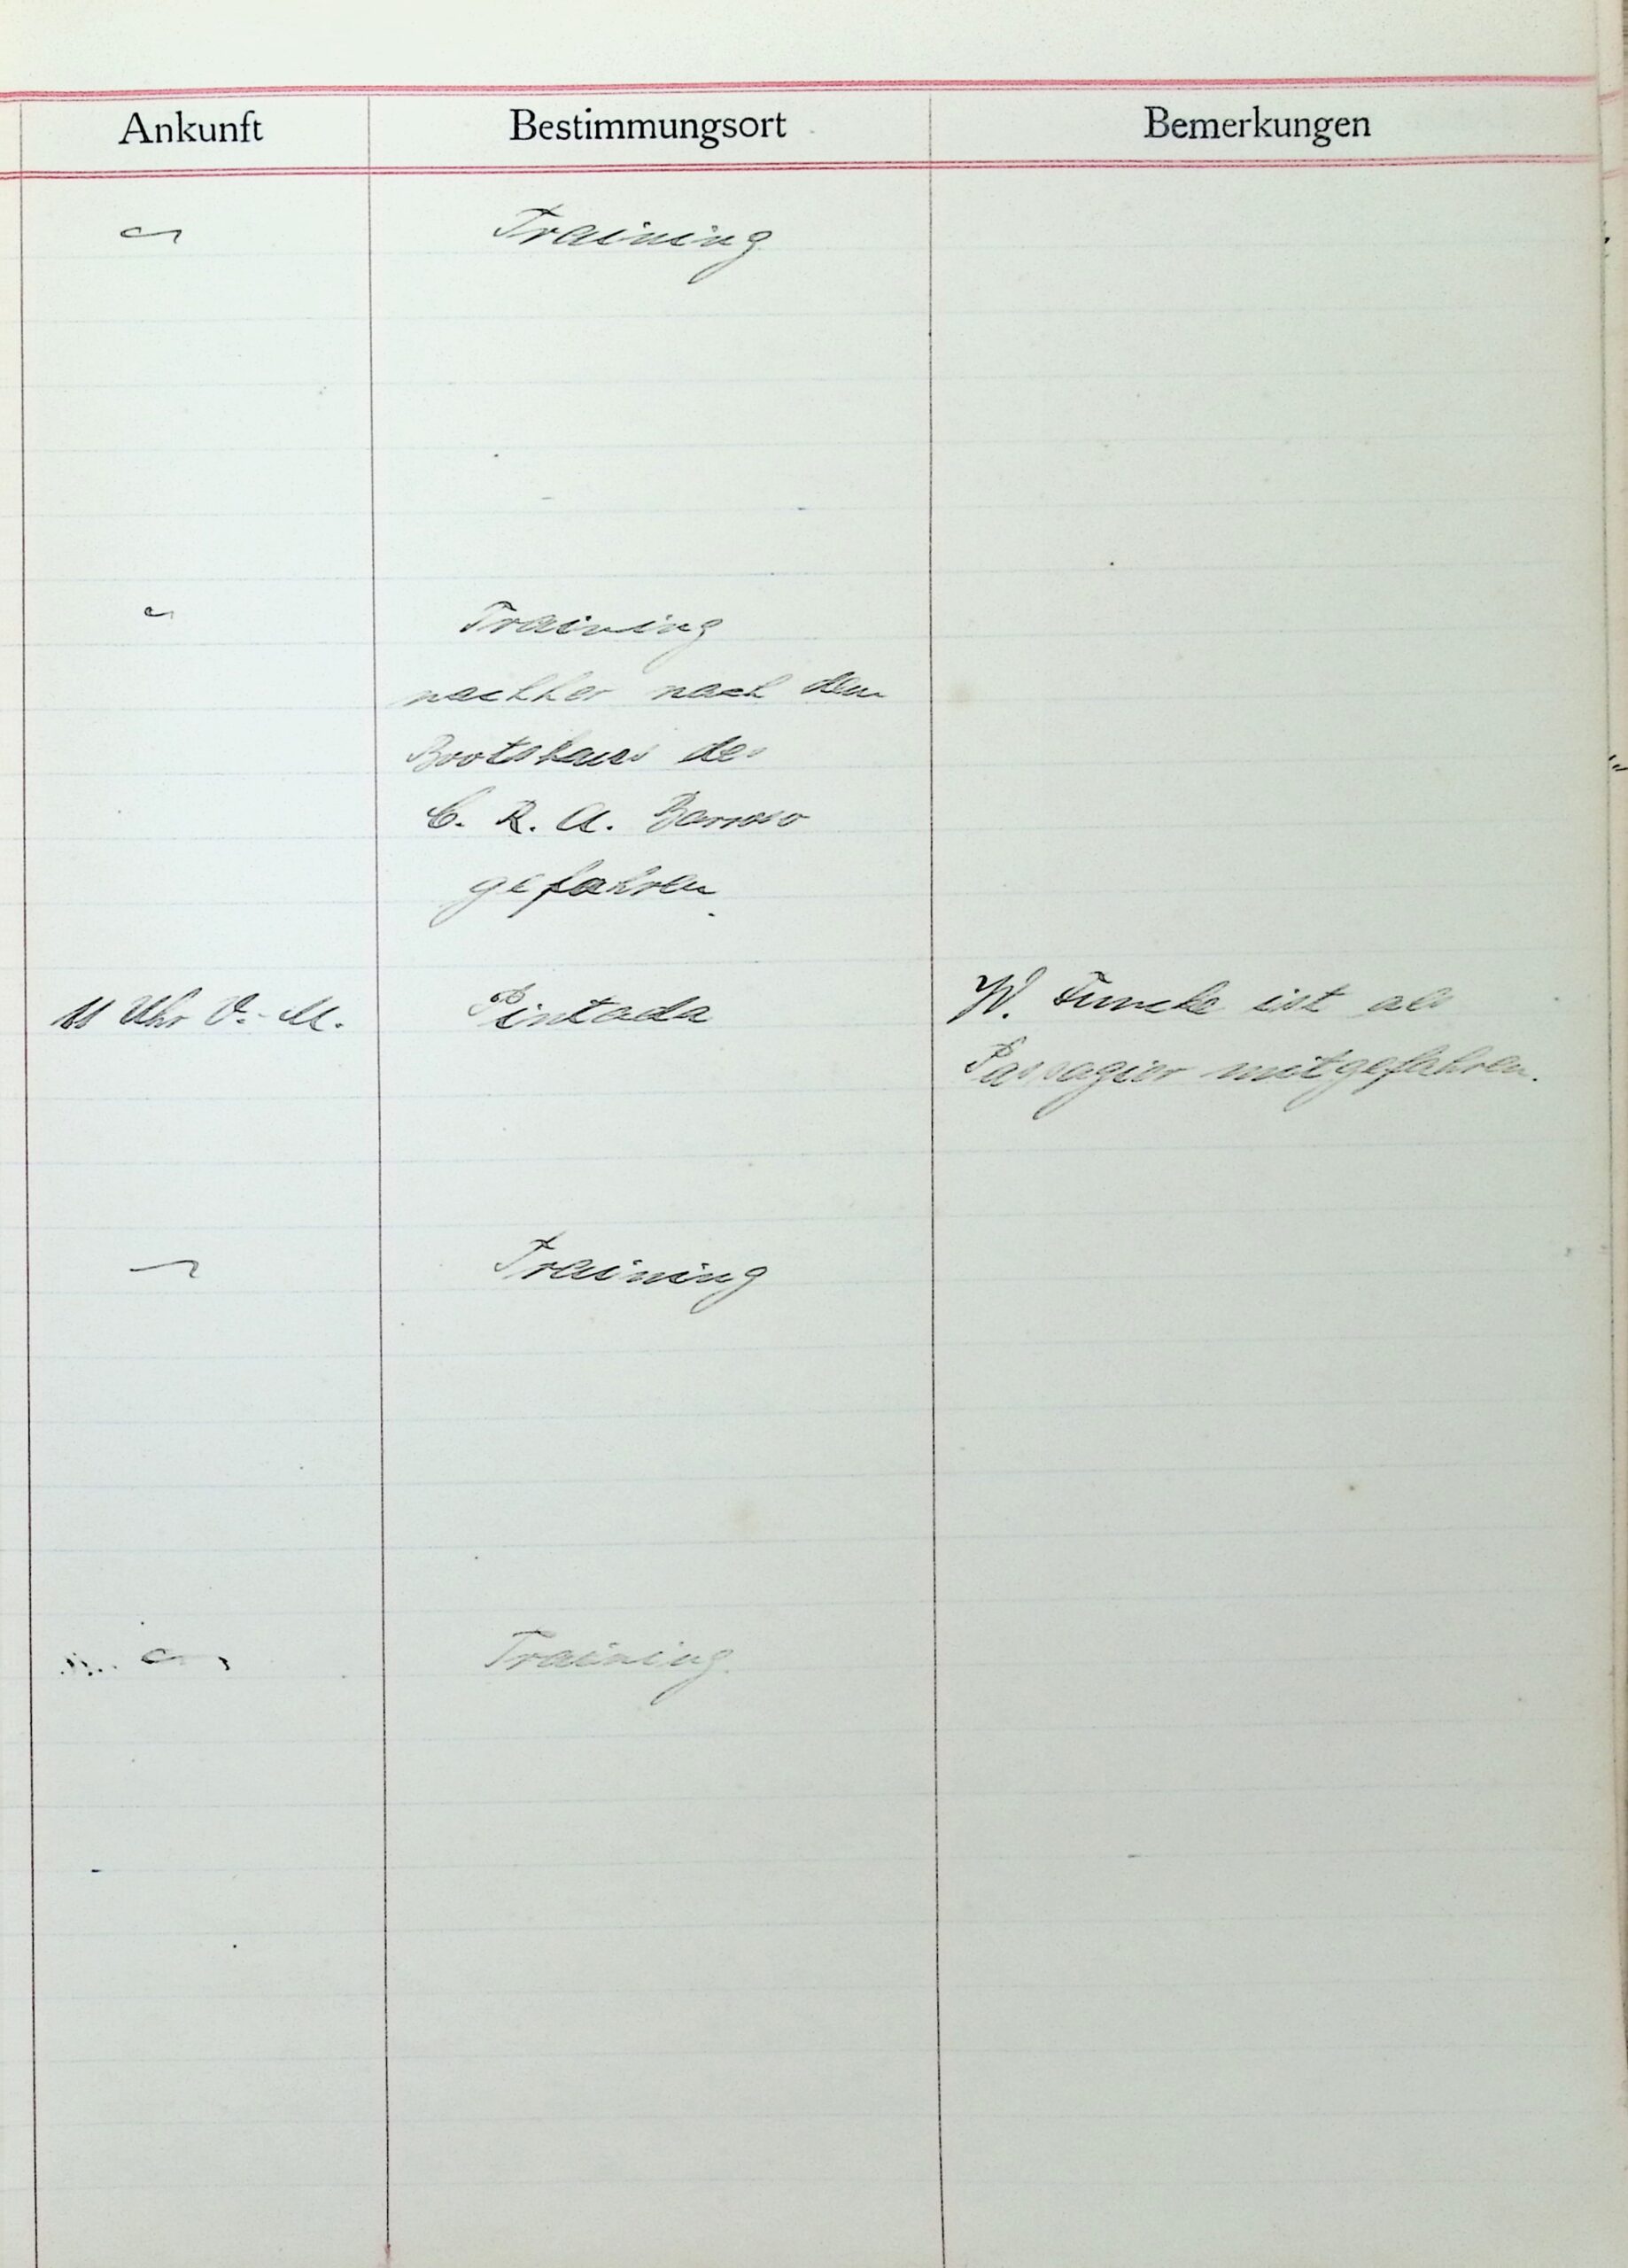 Ankunft Bestimmungsort Bemerkungen
Training
Training
nachher nach dem
Bootshaus des
C. R. A. Barroso
gefahren
11 Uhr V.-M. Pintada W. Funcke ist als
Passagier mitgefahren.
Training
Training.